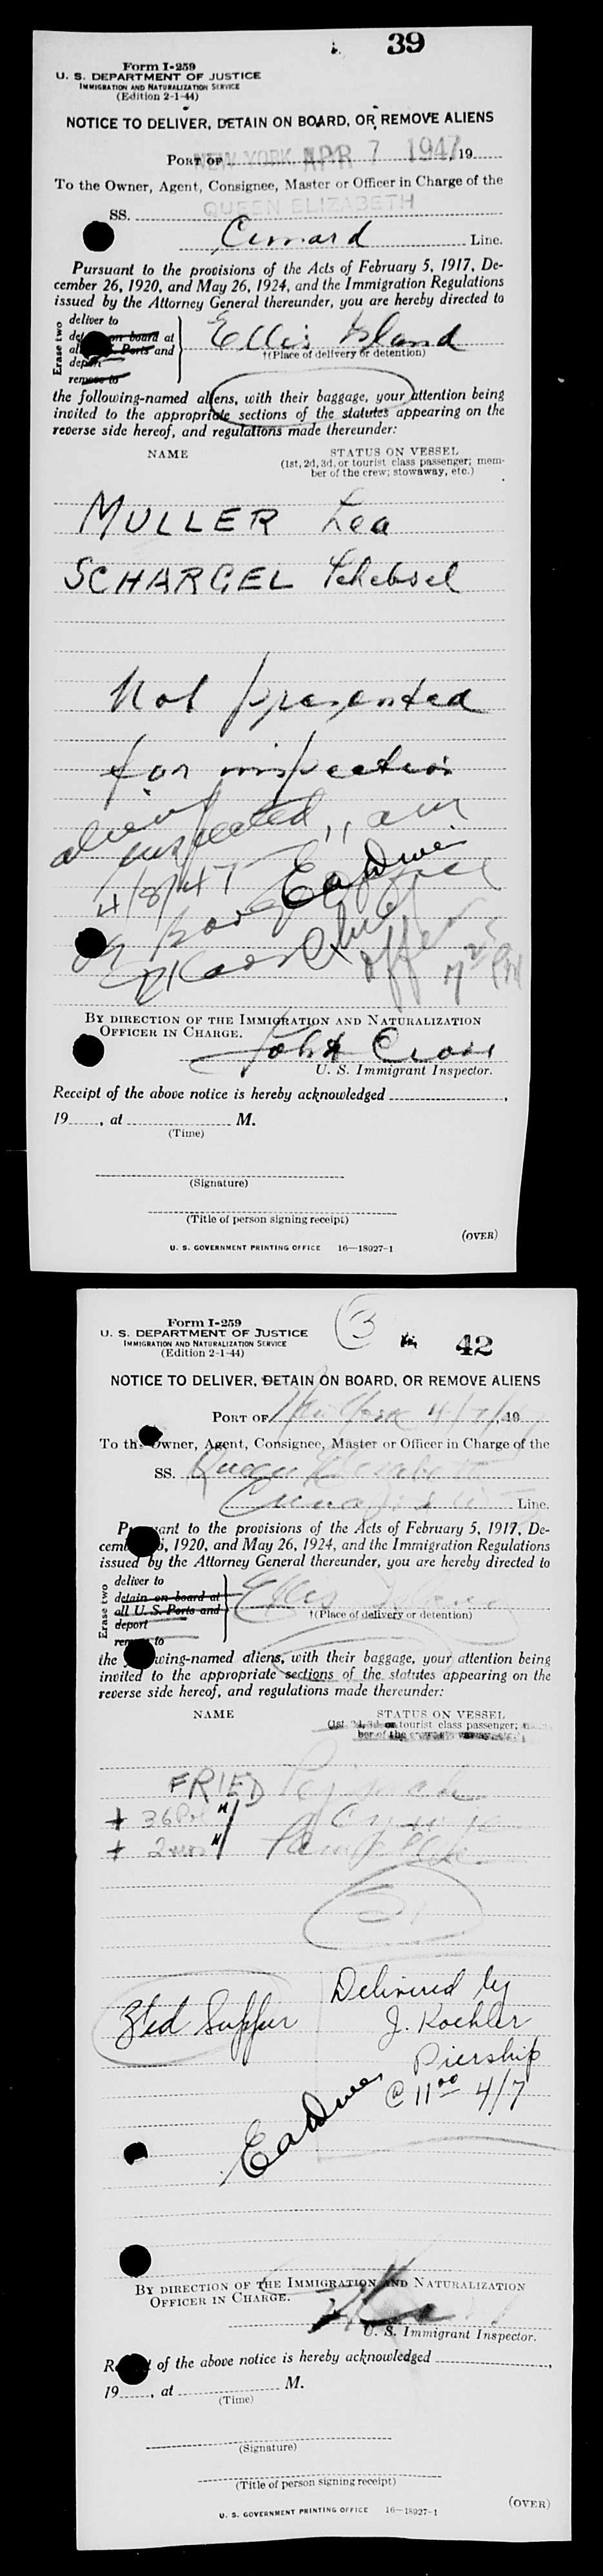 39
Form I-259
U. S. DEPARTMENT OF JUSTICE
IMMIGRATION AND NATURALIZATION SERVICE
(Edition 2-1-44)
NOTICE TO DELIVER, DETAIN ON BOARD, OR REMOVE ALIENS
PORT OF NEW YORK APR 7 1947, 19
To the Owner, Agent, Consignee, Master or Officer in Charge of the
SS. QUEEN ELIZABETH
Cunard Line.
Pursuant to the provisions of the Acts of February 5, 1917, De-
cember 26, 1920, and May 26, 1924, and the Immigration Regulations
issued by the Attorney General thereunder, you are hereby directed to
Erase two
deliver to
on board at
Ports and
remove to
Ellis Island
†(Place of delivery or detention)
the following-named aliens, with their baggage, your attention being
invited to the appropriate sections of the statutes appearing on the
reverse side hereof, and regulations made thereunder:
NAME STATUS ON VESSEL
(1st, 2d, 3d, or tourist class passenger; mem-
ber of the crew; stowaway, etc.)
MULLER Lea
SCHARGEL Schebsel
Not presented
for inspection
alien
inspected
4/8/47
BY DIRECTION OF THE IMMIGRATION AND NATURALIZATION
OFFICER IN CHARGE.
U. S. Immigrant Inspector.
Receipt of the above notice is hereby acknowledged
19, at M.
(Time)
(Signature)
(Title of person signing receipt)
(OVER)
U. S. GOVERNMENT PRINTING OFFICE 16—18027-1
3
42
Form I-259
U. S. DEPARTMENT OF JUSTICE
IMMIGRATION AND NATURALIZATION SERVICE
(Edition 2-1-44)
NOTICE TO DELIVER, DETAIN ON BOARD, OR REMOVE ALIENS
PORT OF New York 4/7/47, 19
To the Owner, Agent, Consignee, Master or Officer in Charge of the
SS. Queen Elizabeth
Cunard Line.
Pursuant to the provisions of the Acts of February 5, 1917, De-
1920, and May 26, 1924, and the Immigration Regulations
issued by the Attorney General thereunder, you are hereby directed to
Erase two
deliver to
detain on board at
all U.S. Ports and
deport
remove to
Ellis Island
†(Place of delivery or detention)
the following-named aliens, with their baggage, your attention being
invited to the appropriate sections of the statutes appearing on the
reverse side hereof, and regulations made thereunder:
NAME STATUS ON VESSEL
(1st, 2d, 3d, or tourist class passenger;
FRIED
Delivered by
J. Koehler
Piership
@ 11 00 4/7
BY DIRECTION OF THE IMMIGRATION AND NATURALIZATION
OFFICER IN CHARGE.
U. S. Immigrant Inspector.
of the above notice is hereby acknowledged
19, at M.
(Time)
(Signature)
(Title of person signing receipt)
(OVER)
U. S. GOVERNMENT PRINTING OFFICE 16—18027-1